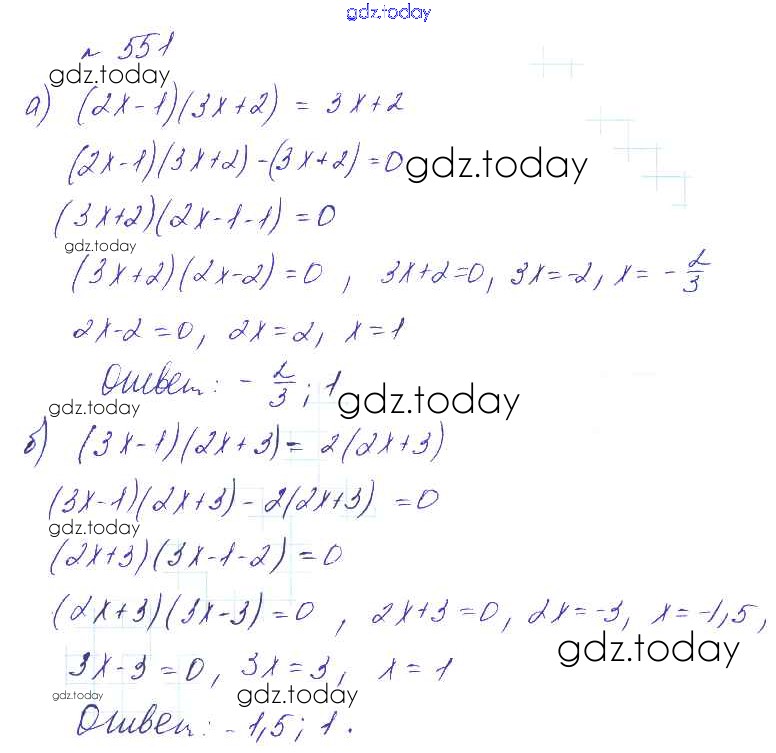 gdz.today
№ 551
gdz.today
а) (2x-1)(3x+2) = 3x+2
(2x-1)(3x+2)-(3x+2)=0 gdz.today
(3x+2)(2x-1-1)=0
gdz.today
(3x+2)(2x-2)=0, 3x+2=0, 3x=-2, x= -2/3
2x-2=0, 2x=2, x=1
Ответ: -2/3; 1
gdz.today gdz.today
б) (3x-1)(2x+3)= 2(2x+3)
(3x-1)(2x+3)-2(2x+3) =0
gdz.today
(2x+3)(3x-1-2)=0
(2x+3)(3x-3)=0, 2x+3=0, 2x=-3, x=-1,5,
gdz.today
3x-3=0, 3x=3, x=1
gdz.today gdz.today
Ответ: -1,5; 1.